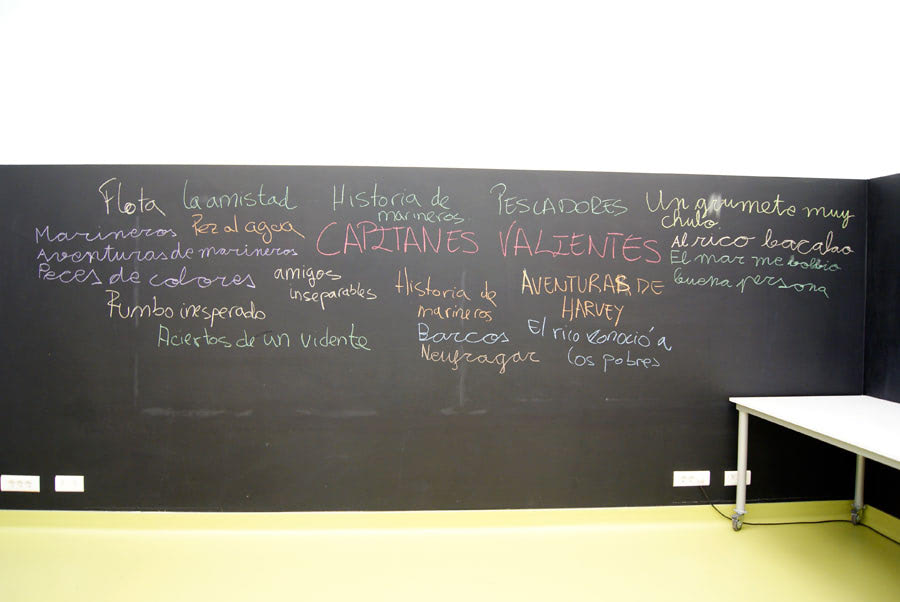 Flota
la amistad
Historia de
marineros
PESCADORES
Un grumete muy
chulo.
Marineros
Pez al agua
CAPITANES VALIENTES
Al rico bacalao
Aventuras de marineros
El mar me bolbio
buena persona
Peces de colores
amigos
inseparables
Historia de
marineros
AVENTURAS DE
HARVEY
Rumbo inesperado
Aciertos de un vidente
Barcos
El rico conoció a
los pobres
Neufragar